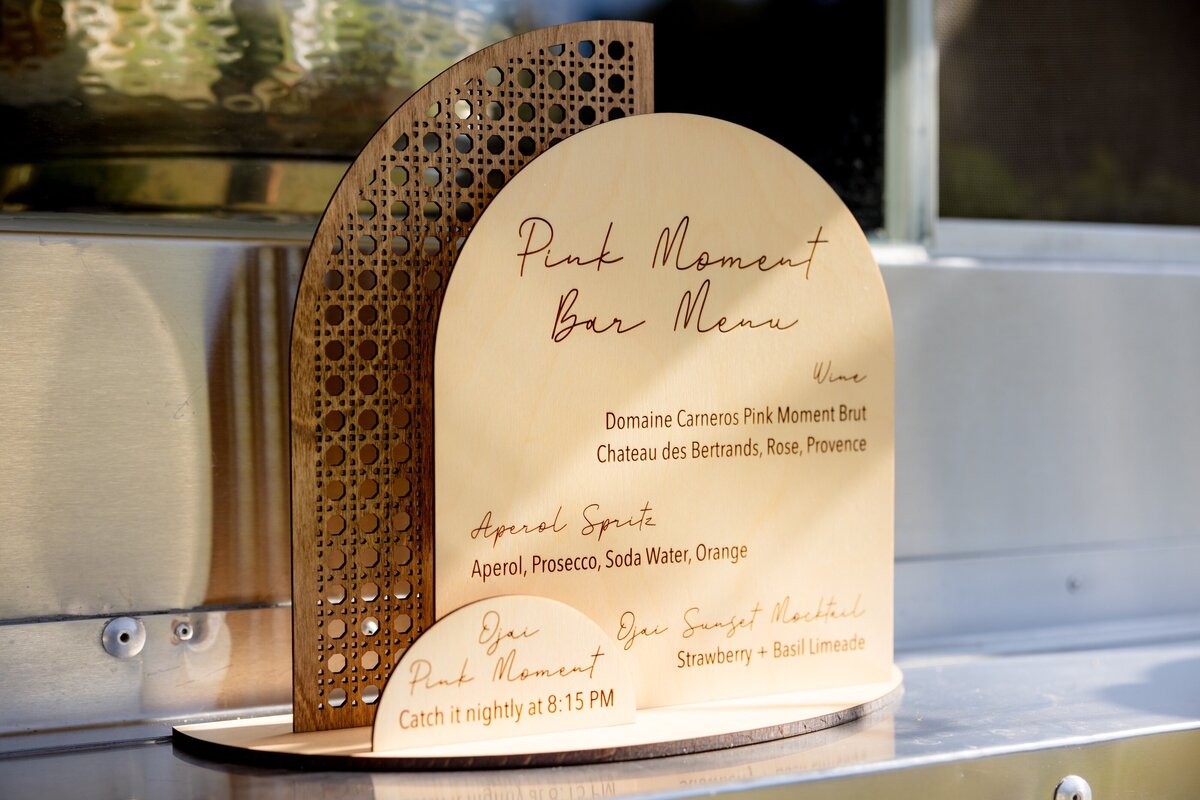 Pink Moment
Bar Menu
Wine
Domaine Carneros Pink Moment Brut
Chateau des Bertrands, Rose, Provence
Aperol Spritz
Aperol, Prosecco, Soda Water, Orange
Ojai Sunset Mocktail
Strawberry + Basil Limeade
Ojai
Pink Moment
Catch it nightly at 8:15 PM